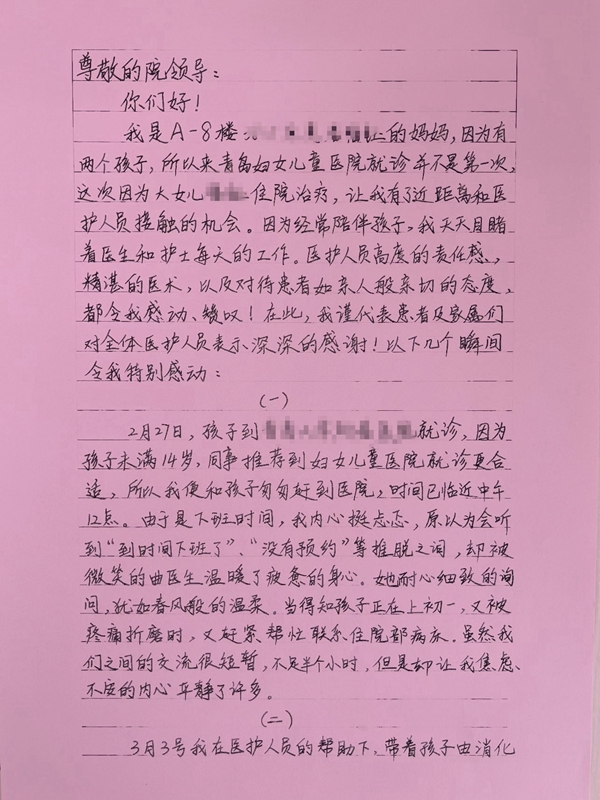 尊敬的院领导：
你们好！
我是A-8楼 的妈妈，因为有
两个孩子，所以来青岛妇女儿童医院就诊并不是第一次，
这次因为大女儿 住院治疗，让我有了近距离和医
护人员接触的机会。因为经常陪伴孩子，我天天目睹
着医生和护士每天的工作。医护人员高度的责任感、
精湛的医术，以及对待患者如亲人般亲切的态度，
都令我感动、赞叹！在此，我谨代表患者及家属们
对全体医护人员表示深深的感谢！以下几个瞬间
令我特别感动：
(一)
2月27日，孩子到 就诊，因为
孩子未满14岁，同事推荐到妇女儿童医院就诊更合
适，所以我便和孩子匆匆赶到医院，时间已临近中午
12点。由于是下班时间，我内心挺忐忑，原以为会听
到“到时间下班了”、“没有预约”等推脱之词，却被
微笑的曲医生温暖了疲惫的身心。她耐心细致的询
问，犹如春风般的温柔。当得知孩子正在上初一，又被
疼痛折磨时，又赶紧帮忙联系住院部病床。虽然我
们之间的交流很短暂，不足半个小时，但是却让我焦虑、
不安的内心平静了许多。
(二)
3月3号我在医护人员的帮助下，带着孩子由消化